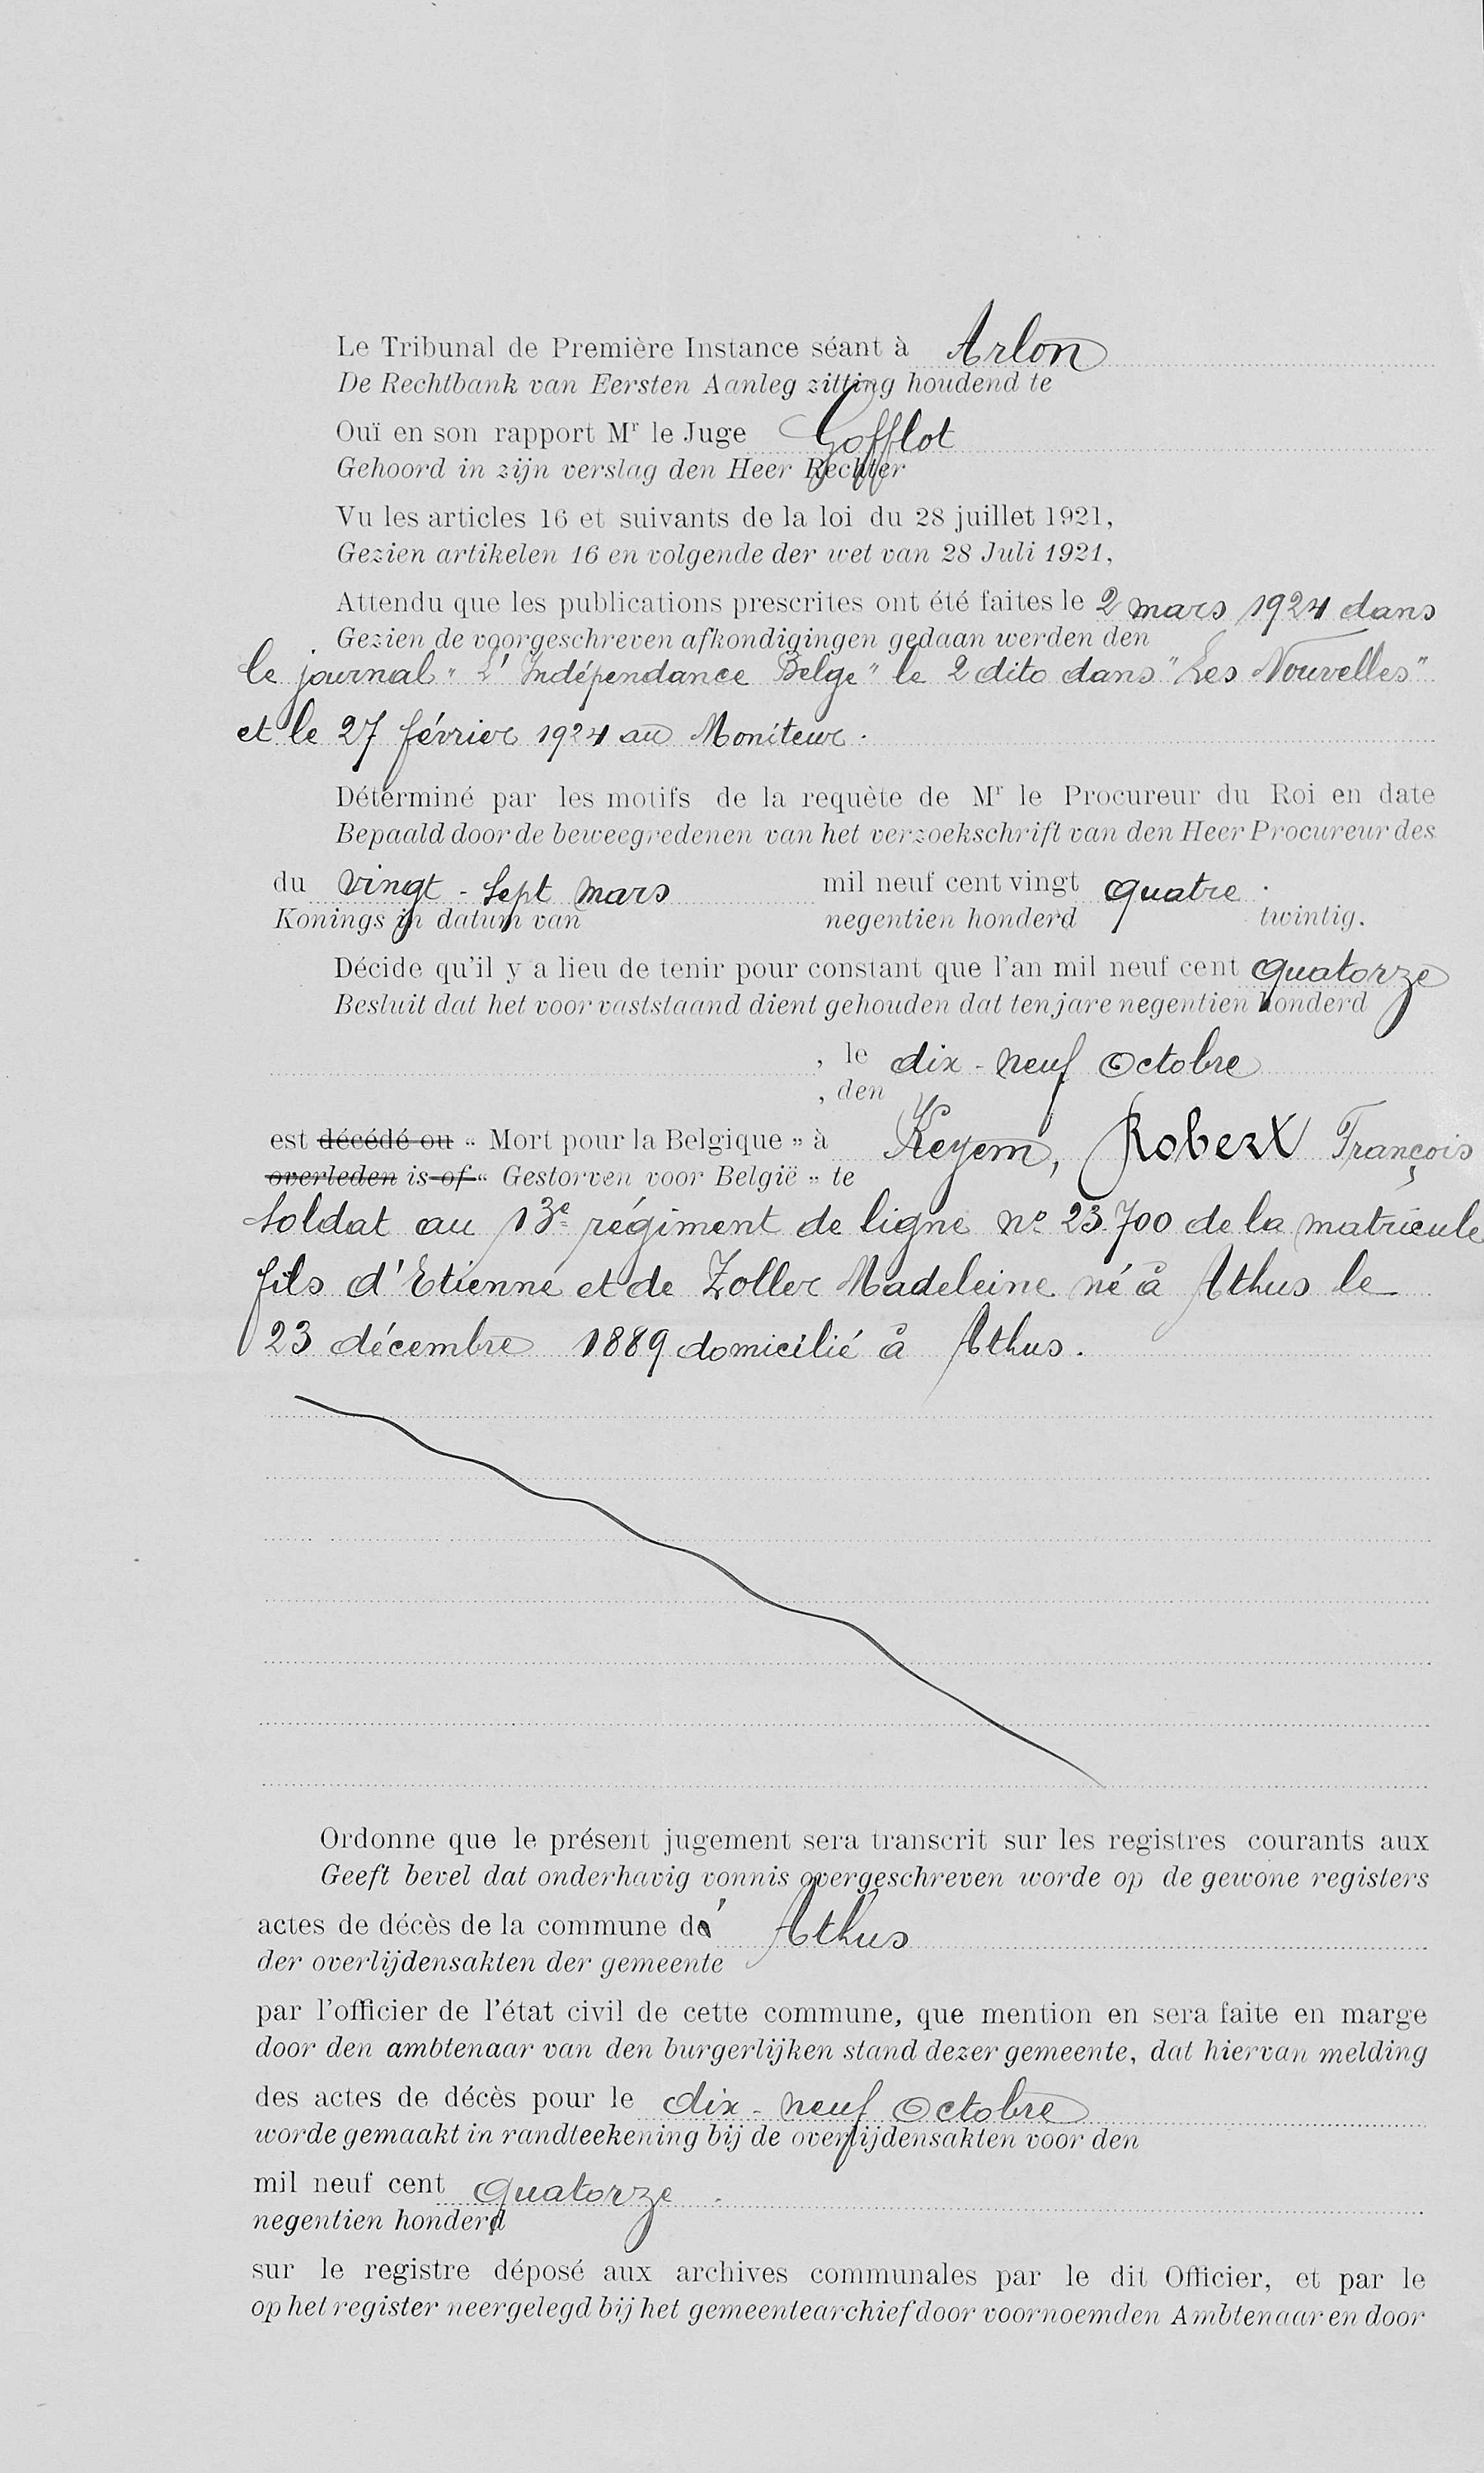 Le Tribunal de Première Instance séant à Arlon
De Rechtbank van Eersten Aanleg zitting houdend te
Ouï en son rapport Mr le Juge Gofflot
Gehoord in zijn verslag den Heer Rechter
Vu les articles 16 et suivants de la loi du 28 juillet 1921,
Gezien artikelen 16 en volgende der wet van 28 Juli 1921,
Attendu que les publications prescrites ont été faites le 2 mars 1924 dans
Gezien de voorgeschreven afkondigingen gedaan werden den
le journal "L'Indépendance Belge" le 2 dito dans "Les Nouvelles"
et le 27 février 1924 au Moniteur.
Déterminé par les motifs de la requète de Mr le Procureur du Roi en date
Bepaald door de beweegredenen van het verzoekschrift van den Heer Procureur des
du vingt-sept mars mil neuf cent vingt quatre.
Konings in datum van negentien honderd twintig.
Décide qu'il y a lieu de tenir pour constant que l'an mil neuf cent quatorze
Besluit dat het voor vaststaand dient gehouden dat ten jare negentien honderd
, le dix-neuf Octobre
, den
est décédé ou « Mort pour la Belgique » à Keyem, Robert François
overleden is of « Gestorven voor België » te
soldat au 13e régiment de ligne no 23.700 de la matricule
fils d'Etienne et de Zoller Madeleine né à Athus le
23 décembre 1889 domicilié à Athus.
Ordonne que le présent jugement sera transcrit sur les registres courants aux
Geeft bevel dat onderhavig vonnis overgeschreven worde op de gewone registers
actes de décès de la commune d' Athus
der overlijdensakten der gemeente
par l'officier de l'état civil de cette commune, que mention en sera faite en marge
door den ambtenaar van den burgerlijken stand dezer gemeente, dat hiervan melding
des actes de décès pour le dix-neuf Octobre
worde gemaakt in randteekening bij de overlijdensakten voor den
mil neuf cent quatorze.
negentien honderd
sur le registre déposé aux archives communales par le dit Officier, et par le
op het register neergelegd bij het gemeentearchief door voornoemden Ambtenaar en door